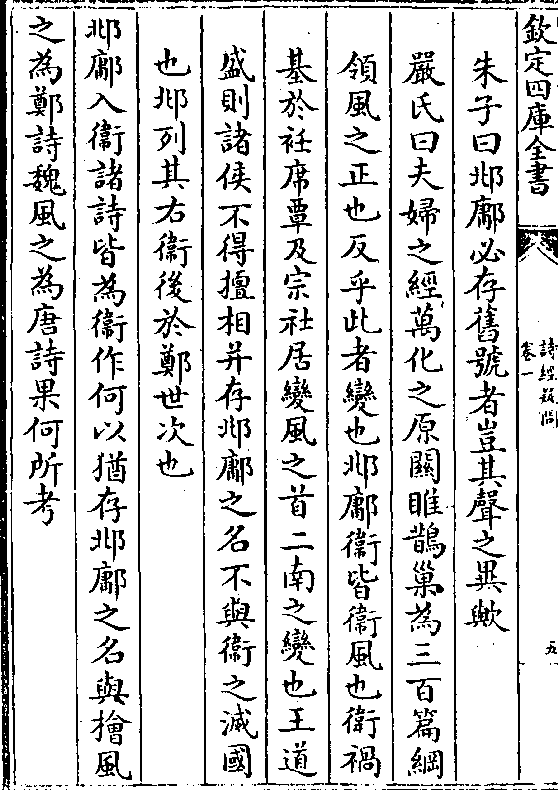 欽定四庫全書
詩經疑問
卷一
五
朱子曰邶鄘必存舊號者豈其聲之異歟
嚴氏曰夫婦之經萬化之原關雎鵲巢為三百篇綱
領風之正也反乎此者變也邶鄘衛皆衛風也衛禍
基於衽席覃及宗社居變風之首二南之變也王道
盛則諸侯不得擅相并存邶鄘之名不與衛之滅國
也邶列其右衛後於鄭世次也
邶鄘入衛諸詩皆為衛作何以猶存邶鄘之名與檜風
之為鄭詩魏風之為唐詩果何所考